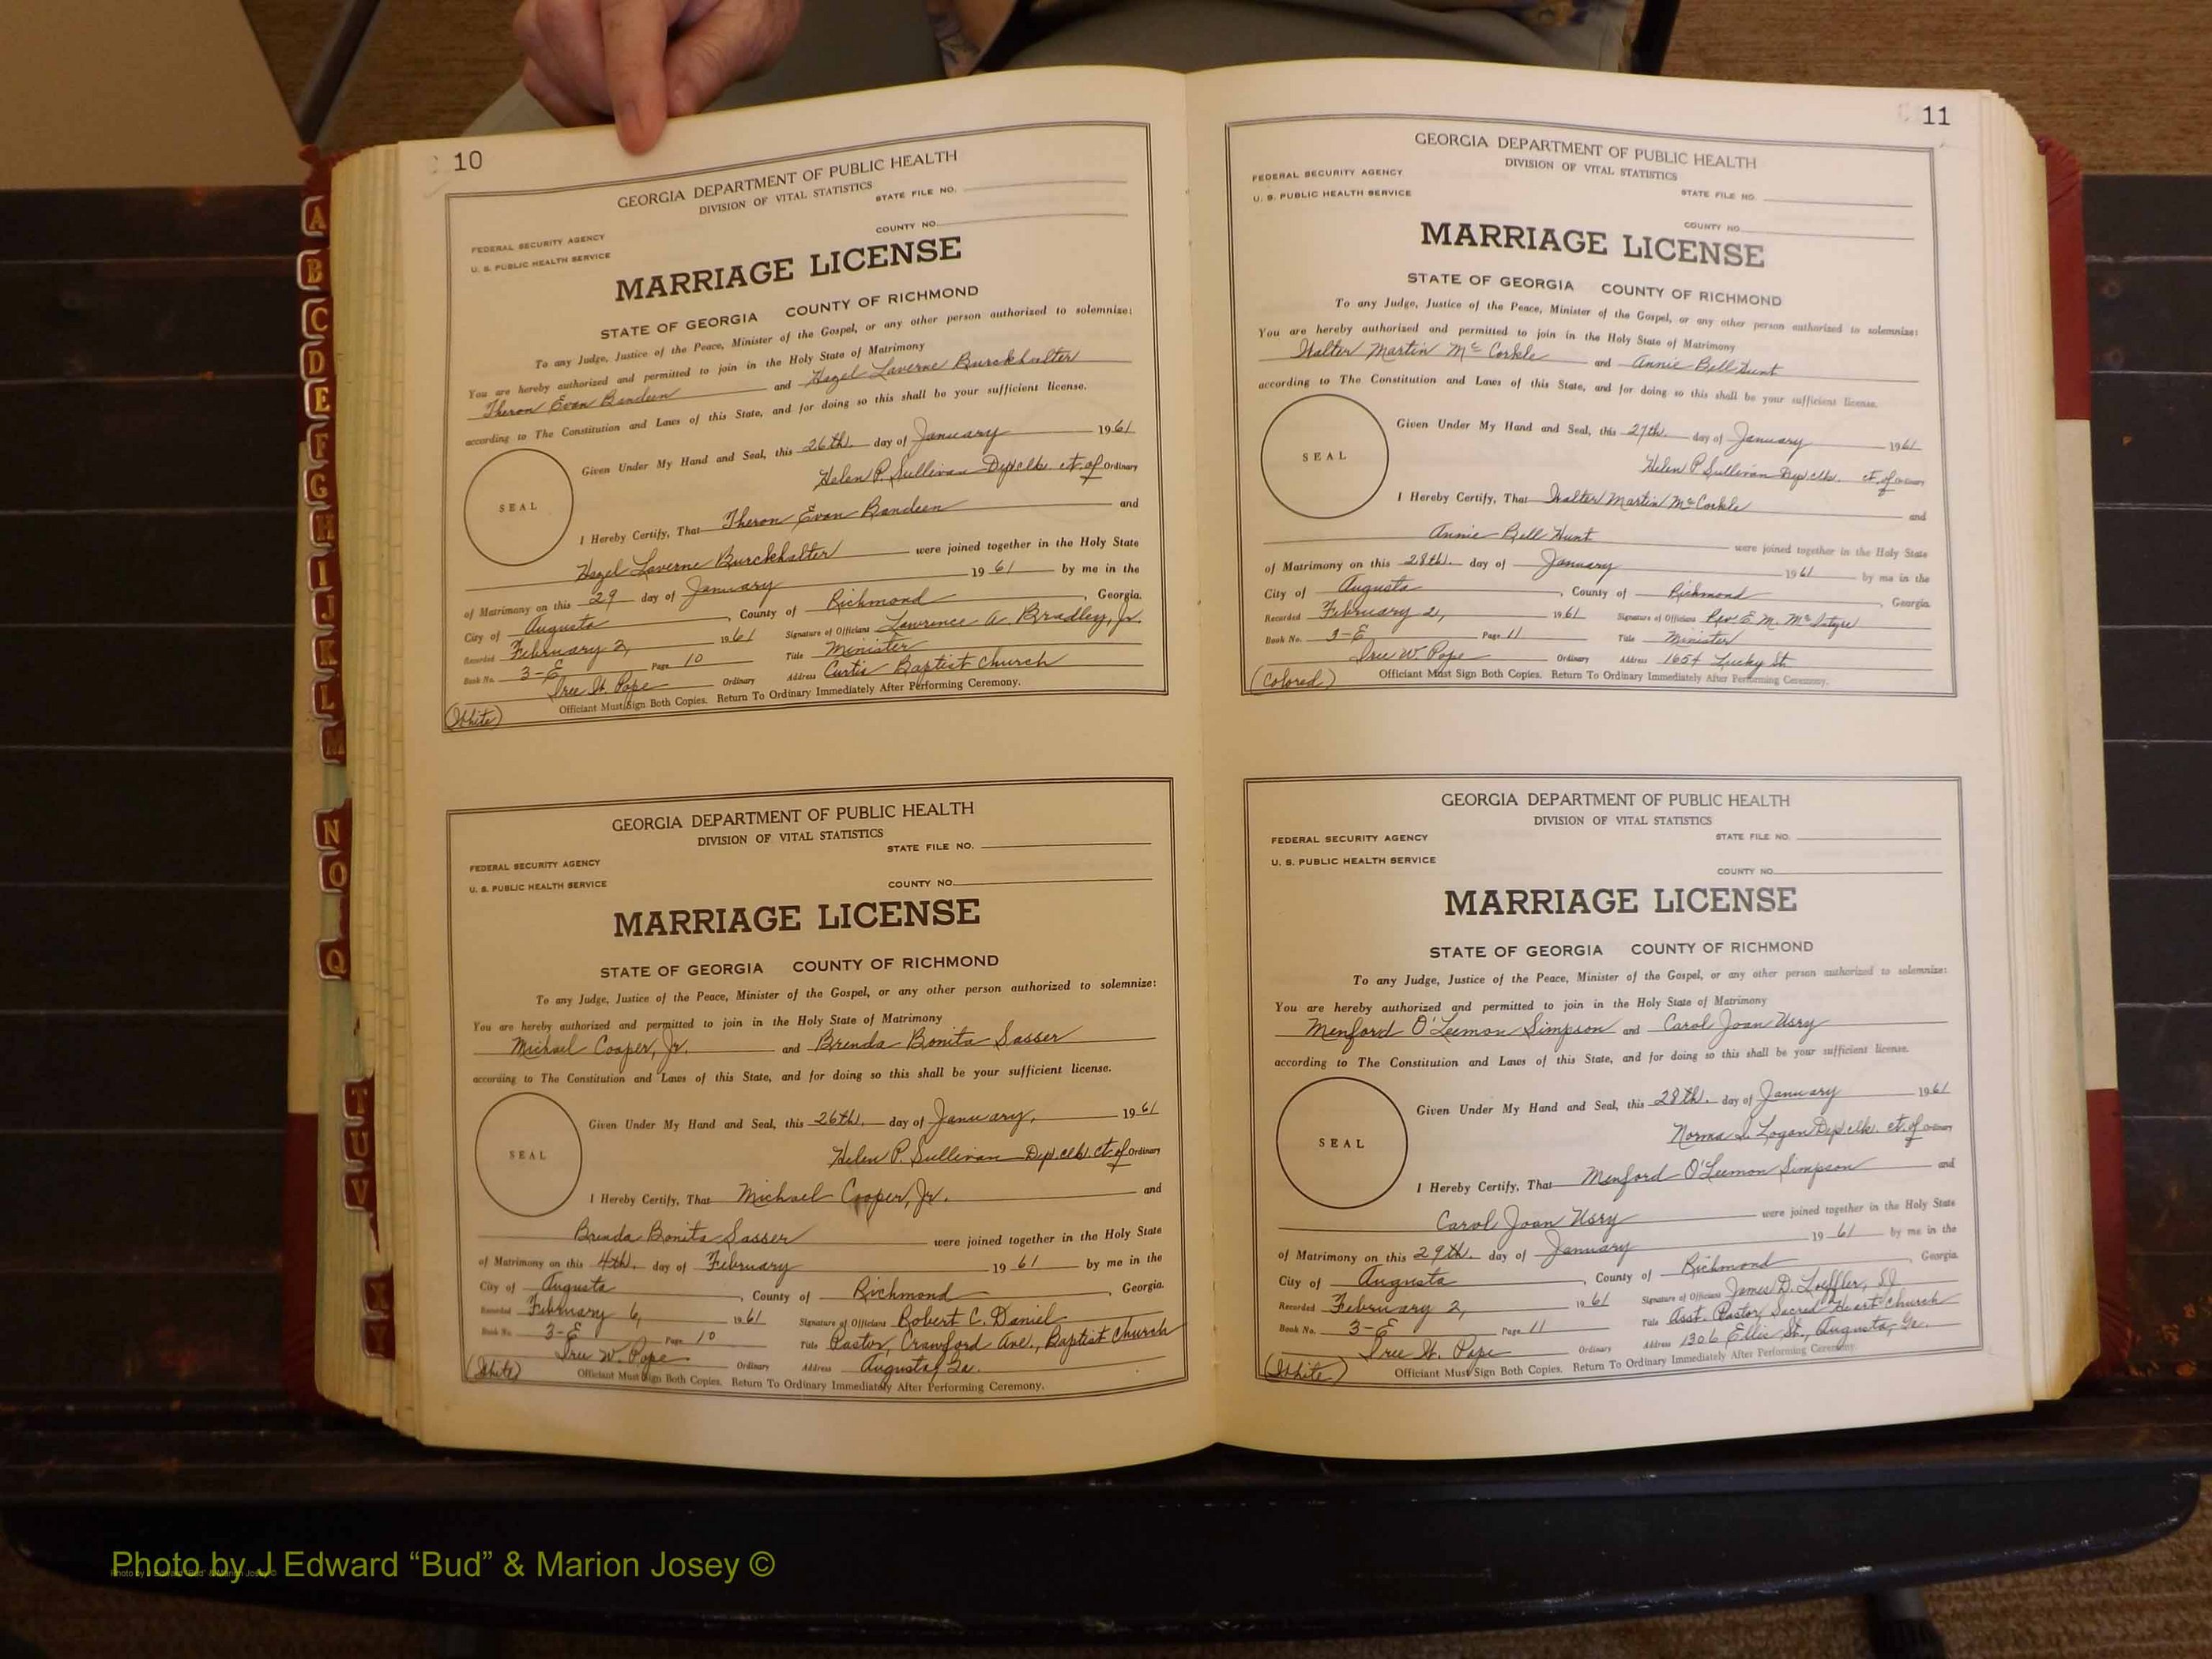 10
GEORGIA DEPARTMENT OF PUBLIC HEALTH
DIVISION OF VITAL STATISTICS
STATE FILE NO.
FEDERAL SECURITY AGENCY
COUNTY NO.
U. S. PUBLIC HEALTH SERVICE
MARRIAGE LICENSE
STATE OF GEORGIA COUNTY OF RICHMOND
To any Judge, Justice of the Peace, Minister of the Gospel, or any other person authorized to solemnize:
You are hereby authorized and permitted to join in the Holy State of Matrimony
Theron Evan Bandeen and Hazel Laverne Burckhalter
according to The Constitution and Laws of this State, and for doing so this shall be your sufficient license.
Given Under My Hand and Seal, this 26th. day of January 1961
Helen P. Sullivan Dep clk. ct. of Ordinary
SEAL
I Hereby Certify, That Theron Evan Bandeen and
Hazel Laverne Burckhalter were joined together in the Holy State
of Matrimony on this 29 day of January 19 61 by me in the
City of Augusta, County of Richmond, Georgia.
Recorded February 2, 1961 Signature of Officiant Lawrence A. Bradley, Jr.
Book No. 3-E Page 10 Title Minister
W. Pope Ordinary Address Curtis Baptist Church
(White) Officiant Must Sign Both Copies. Return To Ordinary Immediately After Performing Ceremony.
GEORGIA DEPARTMENT OF PUBLIC HEALTH
DIVISION OF VITAL STATISTICS
STATE FILE NO.
FEDERAL SECURITY AGENCY
U. S. PUBLIC HEALTH SERVICE
COUNTY NO.
MARRIAGE LICENSE
STATE OF GEORGIA COUNTY OF RICHMOND
To any Judge, Justice of the Peace, Minister of the Gospel, or any other person authorized to solemnize:
You are hereby authorized and permitted to join in the Holy State of Matrimony
Michael Cooper, Jr. and Brenda Bonita Sasser
according to The Constitution and Laws of this State, and for doing so this shall be your sufficient license.
Given Under My Hand and Seal, this 26th. day of January, 1961
Helen P. Sullivan Dep. clk. ct. of Ordinary
SEAL
I Hereby Certify, That Michael Cooper, Jr. and
Brenda Bonita Sasser were joined together in the Holy State
of Matrimony on this 4th. day of February 19 61 by me in the
City of Augusta, County of Richmond, Georgia.
Recorded February 6, 1961 Signature of Officiant Robert C. Daniel
Book No. 3-E Page 10 Title Pastor, Crawford Ave., Baptist Church
W. Pope Ordinary Address Augusta, Ga.
(White) Officiant Must Sign Both Copies. Return To Ordinary Immediately After Performing Ceremony.
11
GEORGIA DEPARTMENT OF PUBLIC HEALTH
DIVISION OF VITAL STATISTICS
FEDERAL SECURITY AGENCY
STATE FILE NO.
U. S. PUBLIC HEALTH SERVICE
COUNTY NO.
MARRIAGE LICENSE
STATE OF GEORGIA COUNTY OF RICHMOND
To any Judge, Justice of the Peace, Minister of the Gospel, or any other person authorized to solemnize:
You are hereby authorized and permitted to join in the Holy State of Matrimony
Walter Martin McCorkle and Annie Bell Hunt
according to The Constitution and Laws of this State, and for doing so this shall be your sufficient license.
Given Under My Hand and Seal, this 27th. day of January 1961
Helen P. Sullivan Dep. clk. ct. of Ordinary
SEAL
I Hereby Certify, That Walter Martin McCorkle and
Annie Bell Hunt were joined together in the Holy State
of Matrimony on this 28th. day of January 1961 by me in the
City of Augusta, County of Richmond, Georgia.
Recorded February 2, 1961 Signature of Officiant Rev. E. M. McIntyre
Book No. 3-E Page 11 Title Minister
W. Pope Ordinary Address 1654 Lucky St.
(Colored) Officiant Must Sign Both Copies. Return To Ordinary Immediately After Performing Ceremony.
GEORGIA DEPARTMENT OF PUBLIC HEALTH
DIVISION OF VITAL STATISTICS
FEDERAL SECURITY AGENCY
STATE FILE NO.
U. S. PUBLIC HEALTH SERVICE
COUNTY NO.
MARRIAGE LICENSE
STATE OF GEORGIA COUNTY OF RICHMOND
To any Judge, Justice of the Peace, Minister of the Gospel, or any other person authorized to solemnize:
You are hereby authorized and permitted to join in the Holy State of Matrimony
Menford O'Leemon Simpson and Carol Joan Usry
according to The Constitution and Laws of this State, and for doing so this shall be your sufficient license.
Given Under My Hand and Seal, this 28th. day of January 1961
Norma L. Logan Dep. clk. ct. of Ordinary
SEAL
I Hereby Certify, That Menford O'Leemon Simpson and
Carol Joan Usry were joined together in the Holy State
of Matrimony on this 29th. day of January 19 61 by me in the
City of Augusta, County of Richmond, Georgia.
Recorded February 2, 1961 Signature of Officiant James D. Loeffler, SJ
Book No. 3-E Page 11 Title Asst. Pastor, Sacred Heart Church
W. Pope Ordinary Address 1306 Ellis St., Augusta, Ga.
(White) Officiant Must Sign Both Copies. Return To Ordinary Immediately After Performing Ceremony.
A
B
C
D
E
F
G
H
I
J
K
L
M
N
O
Q
T
U
V
Photo by J Edward “Bud” & Marion Josey ©
Photo by J Edward “Bud” & Marion Josey ©